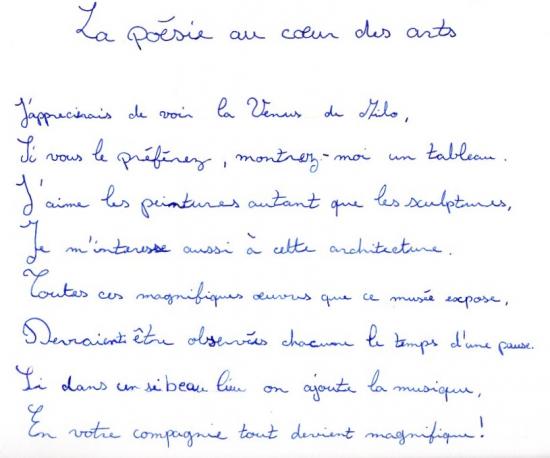 La poésie au cœur des arts
J'apprecierais de voir la Venus de Milo,
Si vous le préférez, montrez-moi un tableau.
J'aime les peintures autant que les sculptures,
Je m'interesse aussi à cette architecture.
Toutes ces magnifiques œuvres que ce musée expose,
Devraient être observées chacune le temps d'une pause.
Si dans un si beau lieu on ajoute la musique,
En votre compagnie tout devient magnifique!